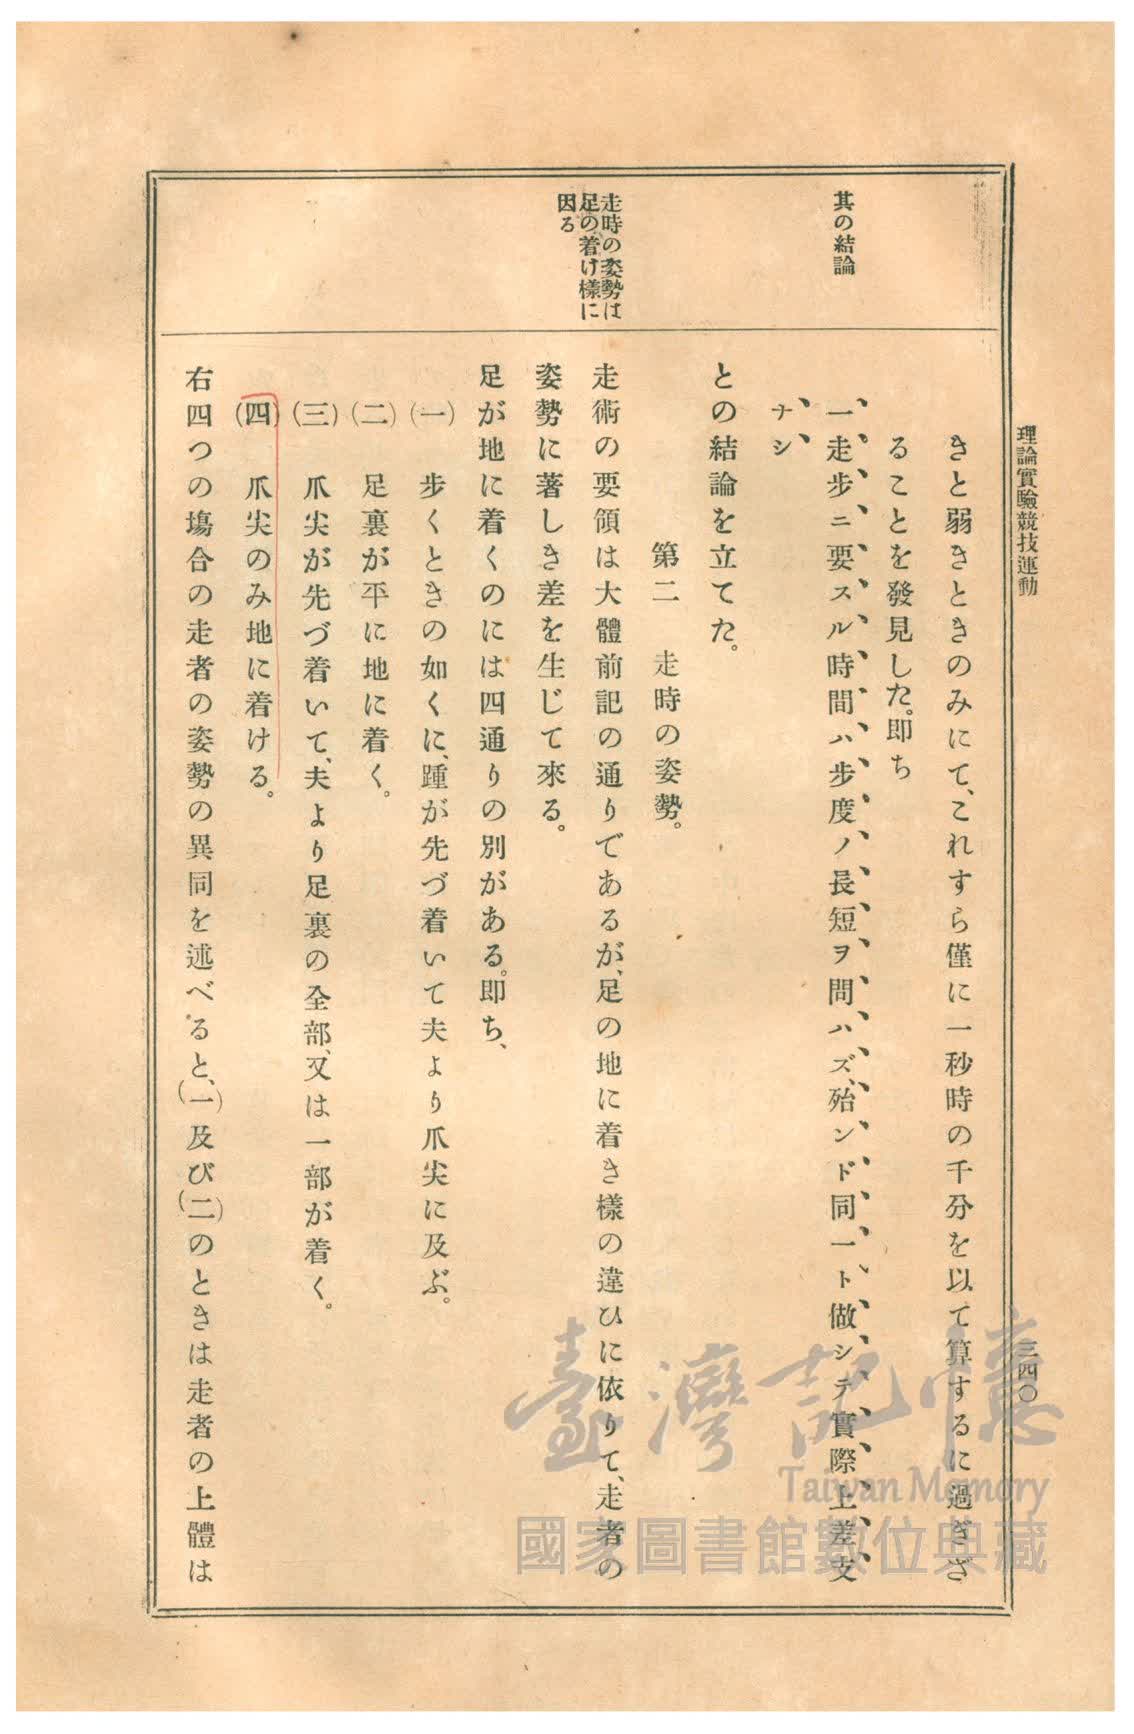 理論實驗競技運動
三四〇
其の結論
走時の姿勢は
足の着け樣に
因る
きと弱きときのみにて、これすら僅に一秒時の千分を以て算するに過ぎざ
ることを發見した。即ち
一走步ニ要スル時間ハ步度ノ長短ヲ問ハズ、殆ンド同一ト做シテ實際上差支
ナシ
との結論を立てた。
第二　走時の姿勢。
走術の要領は大體前記の通りであるが、足の地に着き樣の違ひに依りて、走者の
姿勢に著しき差を生じて來る。
足が地に着くのには四通りの別がある。即ち、
(一)　步くときの如くに、踵が先づ着いて夫より爪尖に及ぶ。
(二)　足裏が平に地に着く。
(三)　爪尖が先づ着いて、夫より足裏の全部、又は一部が着く。
(四)　爪尖のみ地に着ける。
右四つの塲合の走者の姿勢の異同を述べると、(一)及び(二)のときは走者の上體は
臺灣記憶
Taiwan Memory
國家圖書館數位典藏